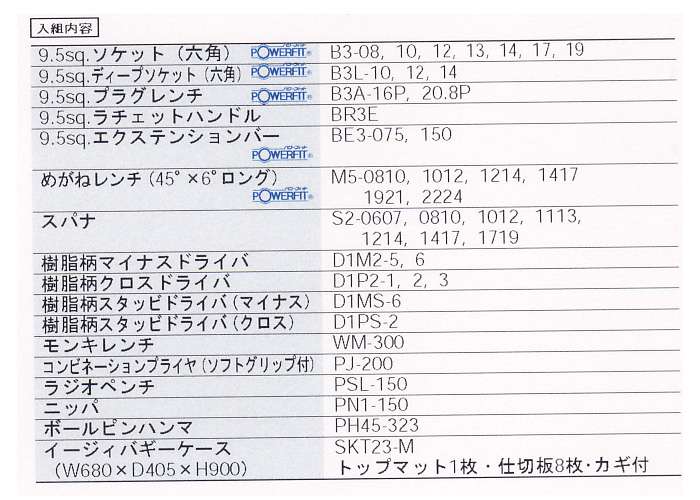 入組内容
9.5sq.ソケット（六角） POWERFIT® B3-08, 10, 12, 13, 14, 17, 19
9.5sq.ディープソケット（六角） POWERFIT® B3L-10, 12, 14
9.5sq.プラグレンチ POWERFIT® B3A-16P, 20.8P
9.5sq.ラチェットハンドル BR3E
9.5sq.エクステンションバー BE3-075, 150
POWERFIT®
めがねレンチ(45°×6°ロング) M5-0810, 1012, 1214, 1417
POWERFIT® 1921, 2224
スパナ S2-0607, 0810, 1012, 1113,
1214, 1417, 1719
樹脂柄マイナスドライバ D1M2-5, 6
樹脂柄クロスドライバ D1P2-1, 2, 3
樹脂柄スタッビドライバ(マイナス) D1MS-6
樹脂柄スタッビドライバ(クロス) D1PS-2
モンキレンチ WM-300
コンビネーションプライヤ(ソフトグリップ付) PJ-200
ラジオペンチ PSL-150
ニッパ PN1-150
ボールピンハンマ PH45-323
イージィバギーケース SKT23-M
(W680×D405×H900) トップマット1枚・仕切板8枚・カギ付